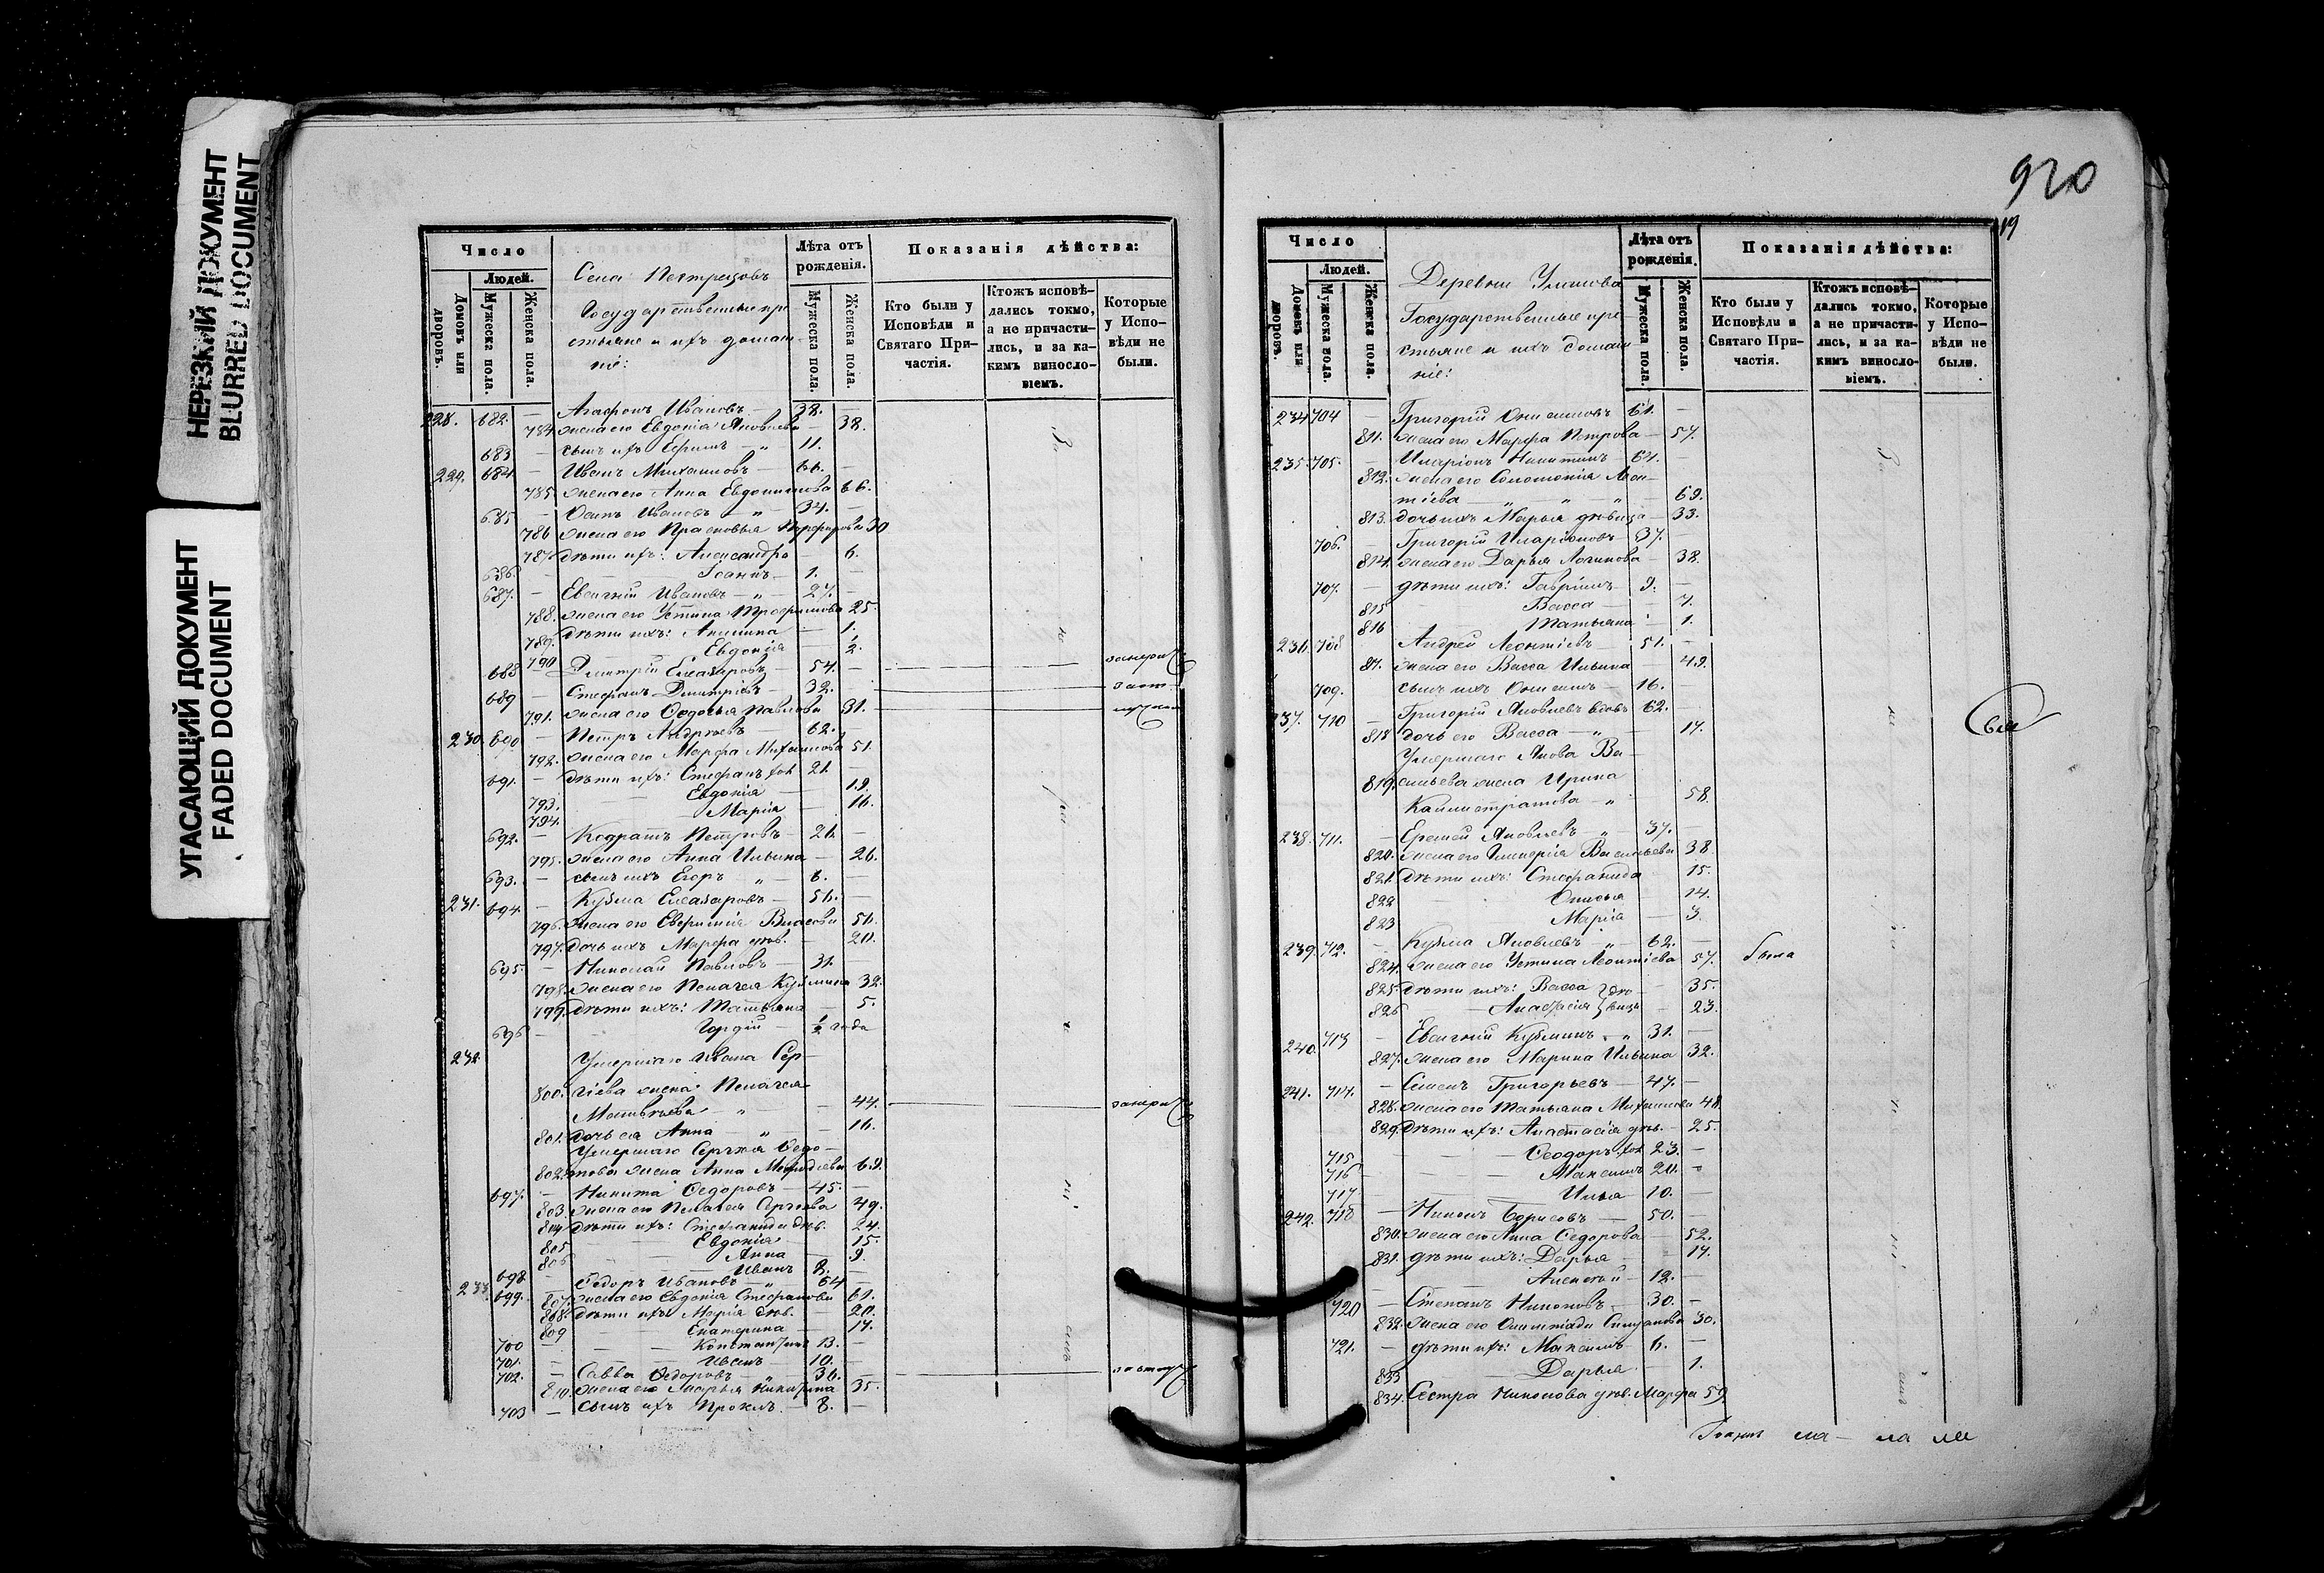 НЕРЕЗКИЙ ДОКУМЕНТ
BLURRED DOCUMENT
УГАСАЮЩИЙ ДОКУМЕНТ
FADED DOCUMENT
Число
Людей.
Домовъ или дворовъ.
Мужеска пола.
Женска пола.
Села Пестрецовъ
Государственные кре-
стьяне и ихъ домаш-
ніе:
Лѣта отъ рожденія.
Мужеска пола.
Женска пола.
Показанія дѣйства:
Кто были у Исповѣди и Святаго При-частія.
Ктожъ исповѣ-дались токмо, а не причасти-лись, и за ка-кимъ винословіемъ.
Которые у Испо-вѣди не были.
228. 682. — Агафонъ Ивановъ — 38.
784. жена его Евдокія Яковлева — 38.
683 — сынъ ихъ Ефимъ — „ 11.
229. 684 — Иванъ Михаиловъ — 66. —
785. жена его Анна Евдокимова 66.
685 — Осипъ Ивановъ — „ — 34. —
786 жена его Прасковья Порфирова 30
787. дѣти ихъ: Александра — 6.
686. — Іоаннъ — 1. —
687. — Евгеній Ивановъ — „ — 27. —
788. жена его Устина Трофимова 25.
789. дѣти ихъ: Акилина — 1.
790 Евдокія — ½.
688 — Дмитрій Елеазаровъ — 54. —
689 — Стефанъ Дмитріевъ — 32. —
791. жена его Федосья Павлова 31.
230. 690 — Петръ Андреевъ — 62. —
792. жена его Марфа Михаилова 51.
691. — дѣти ихъ: Стефанъ хол 21. —
793. Евдокія — 19.
794. Марія — 16.
692. — Кодратъ Петровъ — 26. —
795. жена его Анна Ильина — 26.
693. — сынъ ихъ Егоръ „ — 6. —
231. 694. — Кузма Елеазаровъ — 56. —
796. жена его Евфимія Власова 56.
797. дочь ихъ Марфа дѣв. — 20.
695. — Николай Павловъ — 31. —
798. жена его Пелагея Кузмина 32.
799. дѣти ихъ: Татьяна — 5.
696 — Гордій — ½ года
232. Умершаго Ивана Сер-
800. гіева жена: Пелагея
Матвѣева — „ — 44.
801. дочь ея Анна — „ — 16.
Умершаго Сергѣя Ѳедо-
802. това жена Анна Мефодіева 69.
697. — Никита Ѳедоровъ — 45. —
803. жена его Пелагея Сергѣева 49.
804. дѣти ихъ: Стефанида дѣв. 24.
805. Евдокія — 15.
806 Анна — 9.
698. Иванъ 2. —
233. 699. — Ѳедоръ Ивановъ — „ — 64 —
807. жена его Евдокія Стефанова 61.
808. дѣти ихъ Марія дѣв. — 20.
809 Екатерина — 17.
700 — Константинъ 13. —
701. — Иванъ — 10. —
702. — Савва Ѳедоровъ — „ — 36. —
810. жена его Марья Никитина 35.
703 — сынъ ихъ Прокла — 8. —
920
19
Число
Людей.
Домовъ или дворовъ.
Мужеска пола.
Женска пола.
Деревни
Государственные кре-
стьяне и ихъ домаш-
ніе:
Лѣта отъ рожденія.
Мужеска пола.
Женска пола.
Показанія дѣйства:
Кто были у Исповѣди и Святаго При-частія.
Ктожъ исповѣ-дались токмо, а не причасти-лись, и за ка-кимъ винословіемъ.
Которые у Испо-вѣди не были.
234 704 — Григорій Онисимовъ 61. —
811. жена его Марфа Петрова — 57.
235. 705. — Иларіонъ Никитинъ — 61. —
812. жена его Соломонія Леон-
тіева — „ — „ — 69.
813. дочь ихъ Марья дѣвица — 33.
706. — Григорій Иларіоновъ 37. —
814. жена его Дарья Логинова — 38.
707. — дѣти ихъ: Гавріилъ 9. —
815 Васса — 7.
816 Татьяна — 1.
236. 708 Андрей Леонтіевъ — 51. —
817. жена его Васса Ильина — 49.
709. сынъ ихъ Онисимъ — 16. —
237. 710 — Григорій Яковлевъ вдовъ 62. —
818 дочь его Васса — „ — 17.
Умершаго Якова Ва-
819. сильева жена Ирина
Каллистратова — „ 58.
238. 711. — Еремей Яковлевъ — „ — 37. —
820. жена его Гликерія Васильева 38
821. дѣти ихъ: Стефанида 15.
822 14.
823 Марія — 3.
239. 712. — Кузма Яковлевъ „ — 62. —
824. жена его Устина Леонтіева 57. была
825. дѣти ихъ: Васса дѣ- — 35.
826 — Анастасія вицы — 23.
240. 713 — Евгеній Кузминъ — „ 31. —
827. жена его Марина Ильина 32.
241. 714. — Семенъ Григорьевъ — 47. —
828. жена его Татьяна Михаилова 48.
829. дѣти ихъ: Анастасія дѣв. — 25.
715 — Ѳеодоръ хол 23. —
716 — Максимъ 20. —
717 — Илья — 10. —
242. 718 — Никонъ Борисовъ — 50. —
830. жена его Анна Ѳедорова — 52.
831. дѣти ихъ: Дарья — 17.
Алексѣй — 12. —
720 — Степанъ Никоновъ — 30. —
832. жена его Олимпіада 30.
721. — дѣти ихъ: Максимъ 6. —
833 Дарья — 1.
834. Сестра Никонова дѣв. Марфа 59.